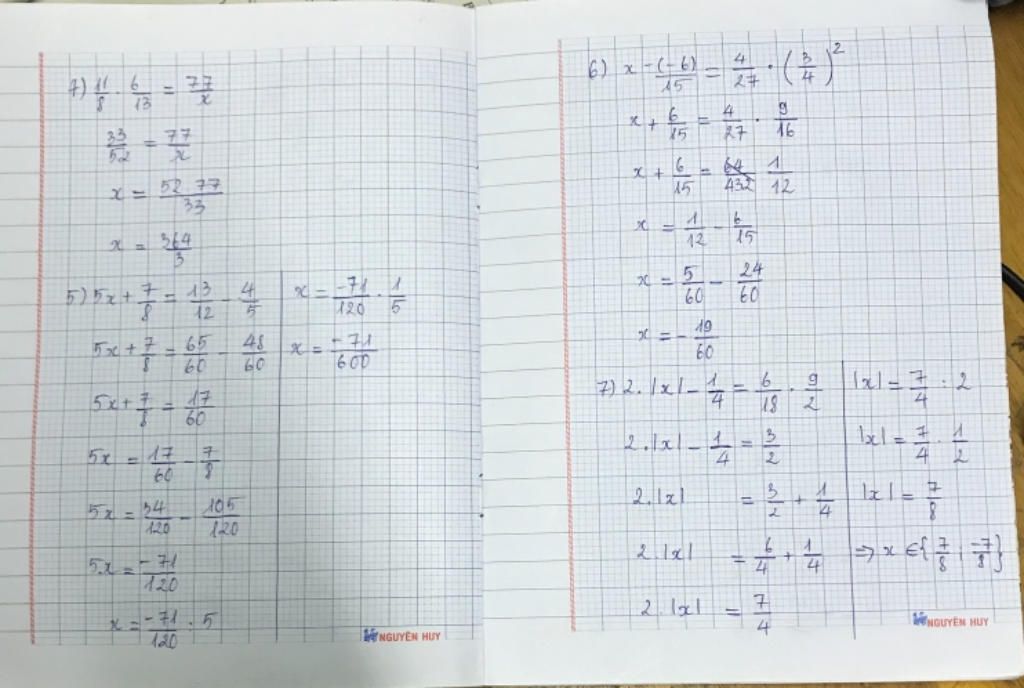 7) 11/8 · 6/13 = 77/x
33/52 = 77/x
x = 52 · 77/33
x = 364/3
5) 5x + 7/8 = 13/12 - 4/5
5x + 7/8 = 65/60 - 48/60
5x + 7/8 = 17/60
5x = 17/60 - 7/8
5x = 34/120 - 105/120
5x = -71/120
x = -71/120 : 5
x = -71/120 · 1/5
x = -71/600
NGUYÊN HUY
6) x - (-6)/15 = 4/27 · (3/4)²
x + 6/15 = 4/27 · 9/16
x + 6/15 = 1/12
x = 1/12 - 6/15
x = 5/60 - 24/60
x = - 19/60
7) 2.|x| - 1/4 = 6/18 · 9/2
2.|x| - 1/4 = 3/2
2.|x| = 3/2 + 1/4
2.|x| = 6/4 + 1/4
2.|x| = 7/4
|x| = 7/4 : 2
|x| = 7/4 · 1/2
|x| = 7/8
=> x ∈ {7/8 ; -7/8}
NGUYÊN HUY